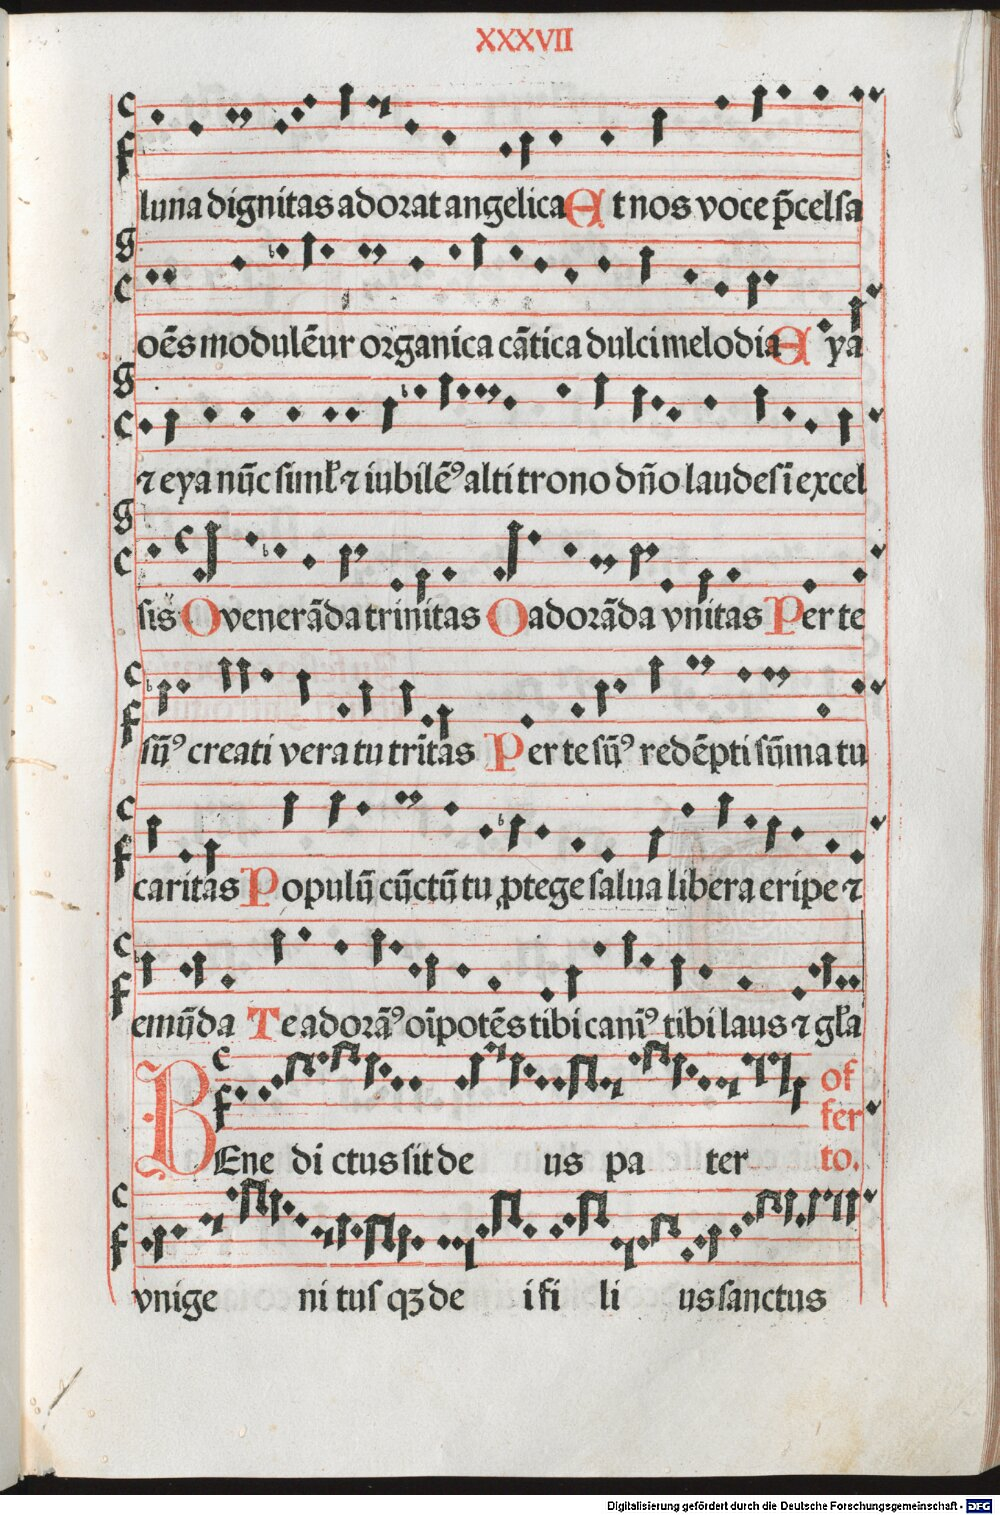 XXXVII
luna dignitas adorat angelica Et nos voce p̄celsa
oēs modulēur organica cātica dulci melodia Eya
⁊ eya nūc simł ⁊ iubilēꝰ alti trono dño laudes ī excel
sis O venerāda trinitas O adorāda vnitas Per te
sūꝰ creati vera tu trītas Per te sūꝰ redēpti sūma tu
caritas Populū cūctū tu ꝓtege salua libera eripe ⁊
emūda Te adorāꝰ oīpotēs tibi canīꝰ tibi laus ⁊ gła
BEne di ctus sit de us pa ter of
fer
to.
vnige ni tus qꝫ de i fi li us sanctus
Digitalisierung gefördert durch die Deutsche Forschungsgemeinschaft - DFG